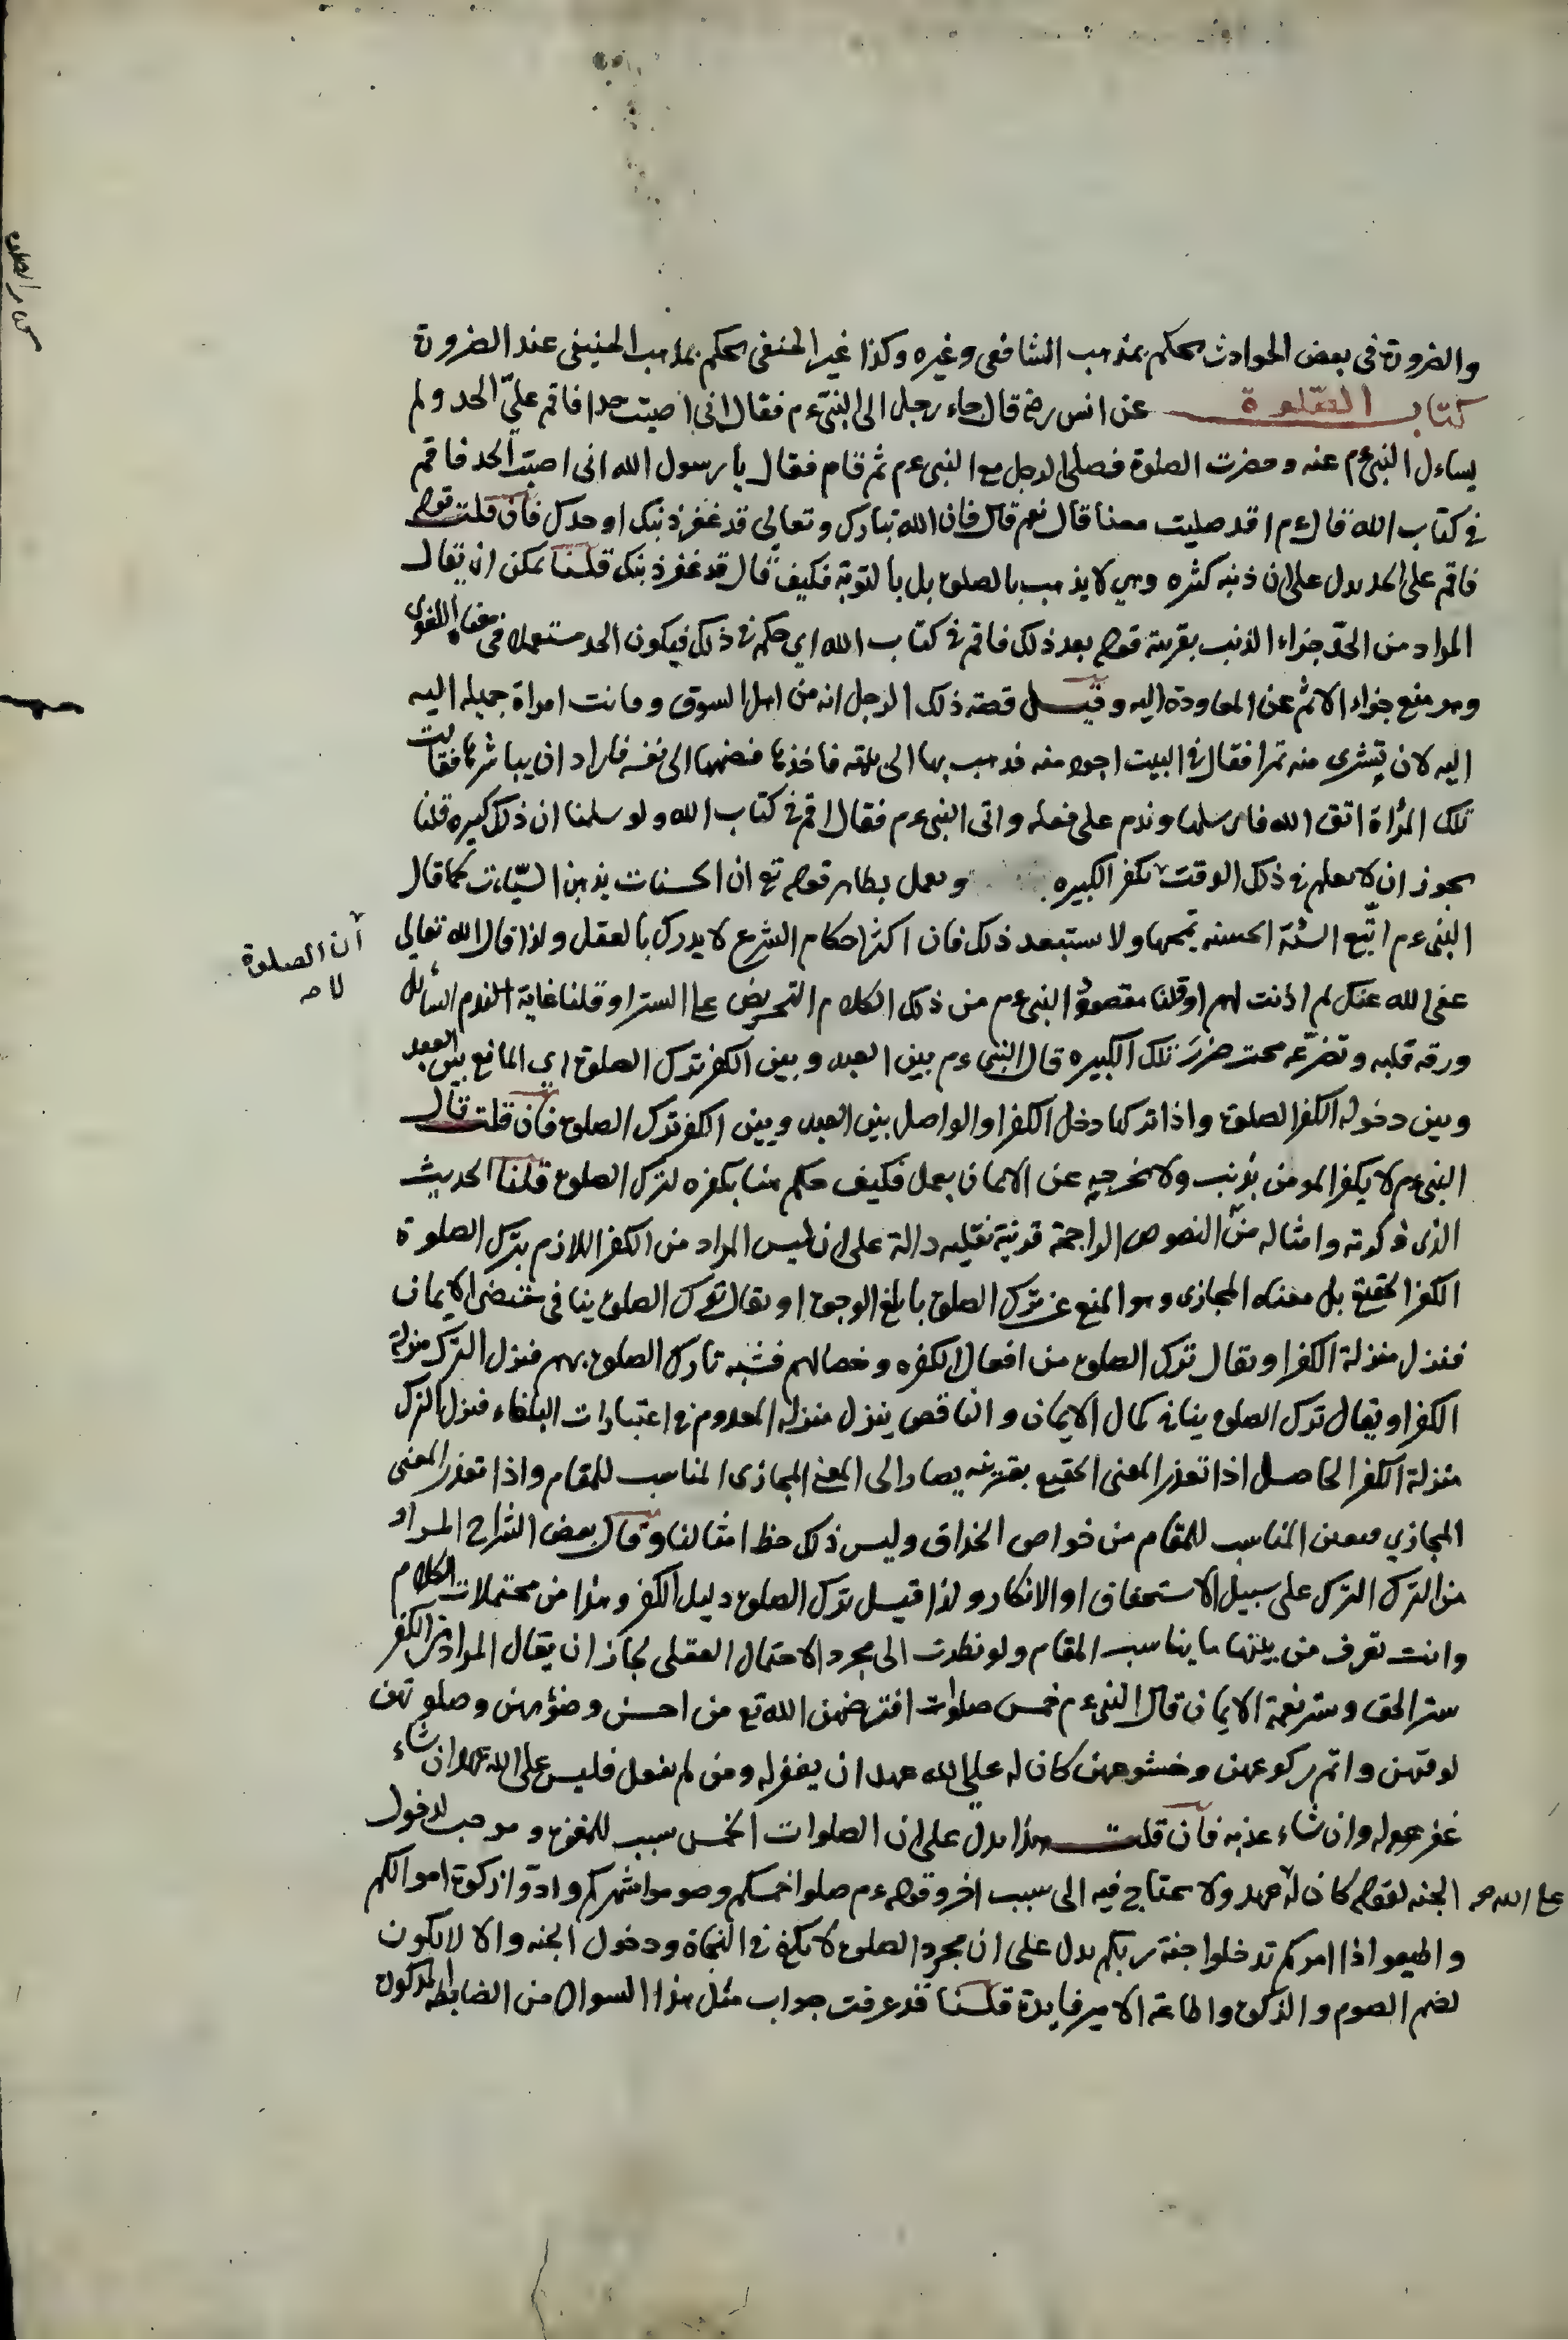 والضرورة في بعض الحوادث يحكم بمذهب الشافعي وغيره وكذا غير الحنفي يحكم بمذهب الحنيفي عند الضرورة
كتاب الصلوة عن انس رض قال جاء رجل الى النبي ءم فقال اني اصبت حدا فاقم عليّ الحد ولم
يساءل النبي ءم عنه وحضرت الصلوة فصلى الرجل مع النبي ءم ثم قام فقال يا رسول الله اني اصبت الحد فاقم
في كتاب الله قال ءم اقد صليت معنا قال نعم قال فان الله تبارك وتعالى قد غفر ذنبك او حدك فان قلت قوله
فاقم على الحد يدل على ان ذنبه كثره وهي لا يذهب بالصلوة بل بالتوبة فكيف قال قد غفر ذنبك قلنا يمكن ان يقال
المراد من الحدّ جزاء الذنب بقرينة قوله بعد ذلك فاقم في كتاب الله اي حكمه في ذلك فيكون الحد مستعملا في معناه اللغوي
وهو منع جزاء الاثم عن المعاودة اليه وقيل قصة ذلك الرجل انه من اهل السوق وكانت امراة جميله اليه
اليه لان تشرى منه تمرا فقال في البيت اجود منه فذهب بها الى بيته فاخذها فضمها الى نفسه فاراد ان يباشرها فقالت
تلك المرأة اتق الله فارسلها وندم على فعله واتى النبي ءم فقال اقم في كتاب الله ولو سلمنا ان ذلك كبيره قلنا
يجوز ان لا يعلم في ذلك الوقت تكفر الكبيره ويعمل بظاهر قوله تع ان الحسنات يذهبن السيّاءت كما قال
ان الصلوة
لا صه
النبي ءم اتّبع السئة الحسنه تمحها ولا ستبعد ذلك فان اكثر احكام الشرع لا يدرك بالعقل ولذا قال الله تعالى
عفى الله عنك لم اذنت لهم او قلنا مقصود النبي ءم من ذلك الكلام التحريض على الستر او قلنا غاية الندم السائل
ورقه قلبه وتضرّعه محت ضرر تلك الكبيره قال النبي ءم بين العبد وبين الكفر ترك الصلوة اي المانع بين العبد
وبين دخوله الكفر الصلوة واذا تركها دخل الكفر او الواصل بين العبد وبين الكفر ترك الصلوة فان قلت قال
النبي ءم لا يكفر المومن بذنب ولا نخرجه عن الايمان بعمل فكيف حكم هنا بكفره لترك الصلوة قلنا الحديث
الذي ذكرته وامثاله من النصوص الراجحة قرينة نقليه دالة على ان ليس المراد من الكفر اللازم بترك الصلوة
الكفر الحقيقي بل معناه المجازى وهو المنع عن ترك الصلوة بابلغ الوجوه او يقال ترك الصلوة ينافي مقتضى الايمان
فنزل منزلة الكفر او يقال ترك الصلوة من افعال الكفره وخصالهم فشبه تارك الصلوة بهم فنزل الترك منزلة
الكفر او يقال ترك الصلوة ينافي كمال الايمان والناقص ينزل منزلة المعدوم في اعتبارات البلغاء فنزل الترك
منزلة الكفر الحاصل اذا تعذر المعنى الحقيقي بقرينه يصار الى المعنى المجازى المناسب للمقام واذا تعذر المعنى
المجازي فتعين المناسب للمقام من خواص الحذاق وليس ذلك حظ امثالنا وقال بعض الشراح المراد
من الترك الترك على سبيل الاستخفاف او الانكار ولذا قيل ترك الصلوة دليل الكفر وهذا من محتملات الكلام
وانت تعرف من بينها ما يناسب المقام ولو نظرت الى مجرد الاحتمال العقلي لجاز ان يقال المراد من الكفر
ستر الحق وستر نعمة الايمان قال النبي ءم خمس صلوات افترضهن الله تع من احسن وضؤهن وصلوتهن
لوقتهن واتم ركوعهن وخشوعهن كان له على الله عهد ان يغفر له ومن لم يفعل فليس على الله عهد ان شاء
غفر له وان شاء عذبه فان قلت هذا يدل على ان الصلوات الخمس سبب للمغفرة وموجب لدخول
على الله صه الجنه لقوله كان له عهد ولا يحتاج فيه الى سبب اخر وقوله ءم صلوا خمسكم وصوموا شهركم وادّوا زكوة اموالكم
واطيعوا اذا امركم تدخلوا جنة ربكم يدل على ان مجرد الصلوة لا يكفي في النجاة ودخول الجنه والا لا يكون
لضم الصوم والزكوة واطاعة الامير فايدة قلنا قد عرفت جواب مثل هذا السوال من الضابطه المذكوره